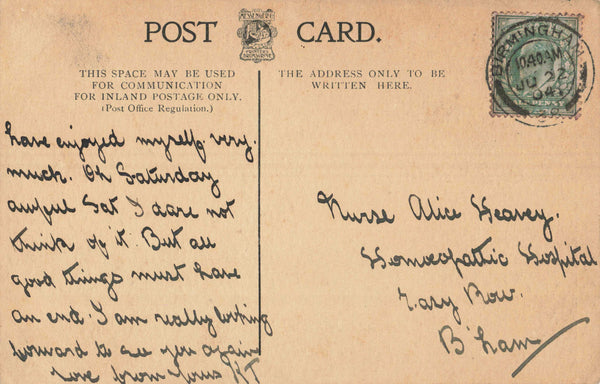 POST CARD.
MESSENGERS
BROMSGROVE
THIS SPACE MAY BE USED
FOR COMMUNICATION
FOR INLAND POSTAGE ONLY.
(Post Office Regulation.)
THE ADDRESS ONLY TO BE
WRITTEN HERE.
BIRMINGHAM
1040AM
JU 22
04
HALFPENNY
have enjoyed myself very
much. Oh Saturday
awful Sat I dare not
think of it. But all
good things must have
an end. I am really looking
forward to see you again
Love from yours KT
Nurse Alice Heavey.
Homoeopathic Hospital
Easy Row.
B'ham